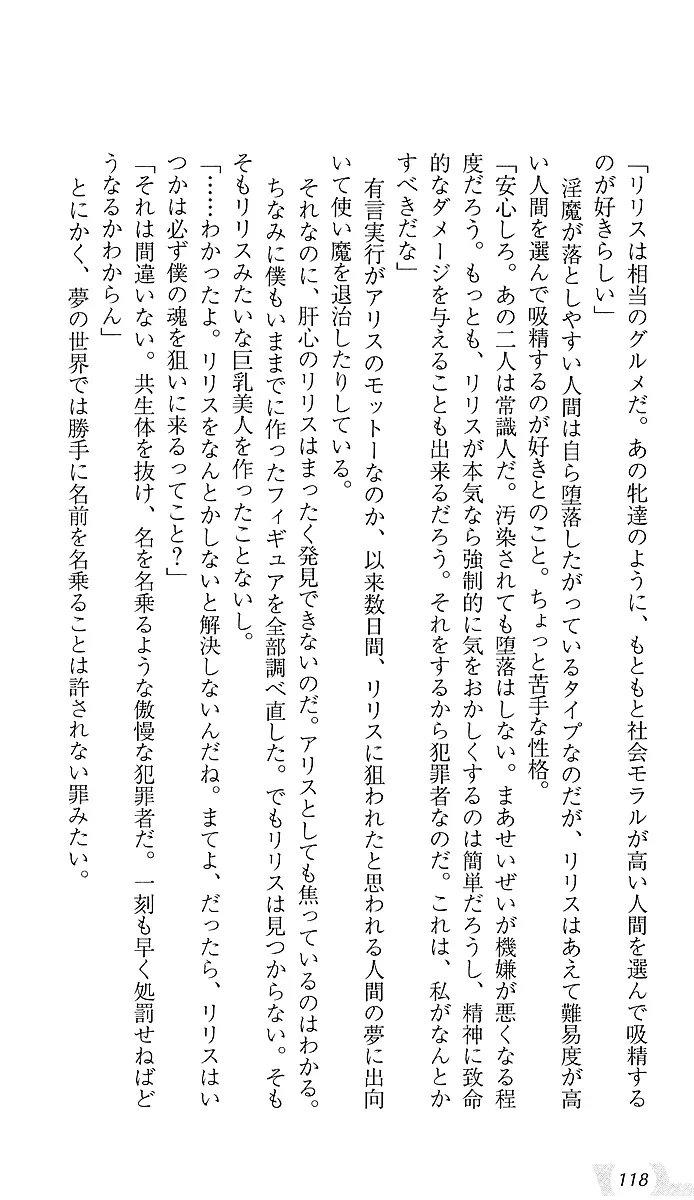 「リリスは相当のグルメだ。あの牝達のように、もともと社会モラルが高い人間を選んで吸精する
のが好きらしい」
淫魔が落としやすい人間は自ら堕落したがっているタイプなのだが、リリスはあえて難易度が高
い人間を選んで吸精するのが好きとのこと。ちょっと苦手な性格。
「安心しろ。あの二人は常識人だ。汚染されても堕落はしない。まあせいぜいが機嫌が悪くなる程
度だろう。もっとも、リリスが本気なら強制的に気をおかしくするのは簡単だろうし、精神に致命
的なダメージを与えることも出来るだろう。それをするから犯罪者なのだ。これは、私がなんとか
すべきだな」
有言実行がアリスのモットーなのか、以来数日間、リリスに狙われたと思われる人間の夢に出向
いて使い魔を退治したりしている。
それなのに、肝心のリリスはまったく発見できないのだ。アリスとしても焦っているのはわかる。
ちなみに僕もいままでに作ったフィギュアを全部調べ直した。でもリリスは見つからない。そも
そもリリスみたいな巨乳美人を作ったことないし。
「……わかったよ。リリスをなんとかしないと解決しないんだね。まてよ、だったら、リリスはい
つかは必ず僕の魂を狙いに来るってこと？」
「それは間違いない。共生体を抜け、名を名乗るような傲慢な犯罪者だ。一刻も早く処罰せねばど
うなるかわからん」
とにかく、夢の世界では勝手に名前を名乗ることは許されない罪みたい。
118